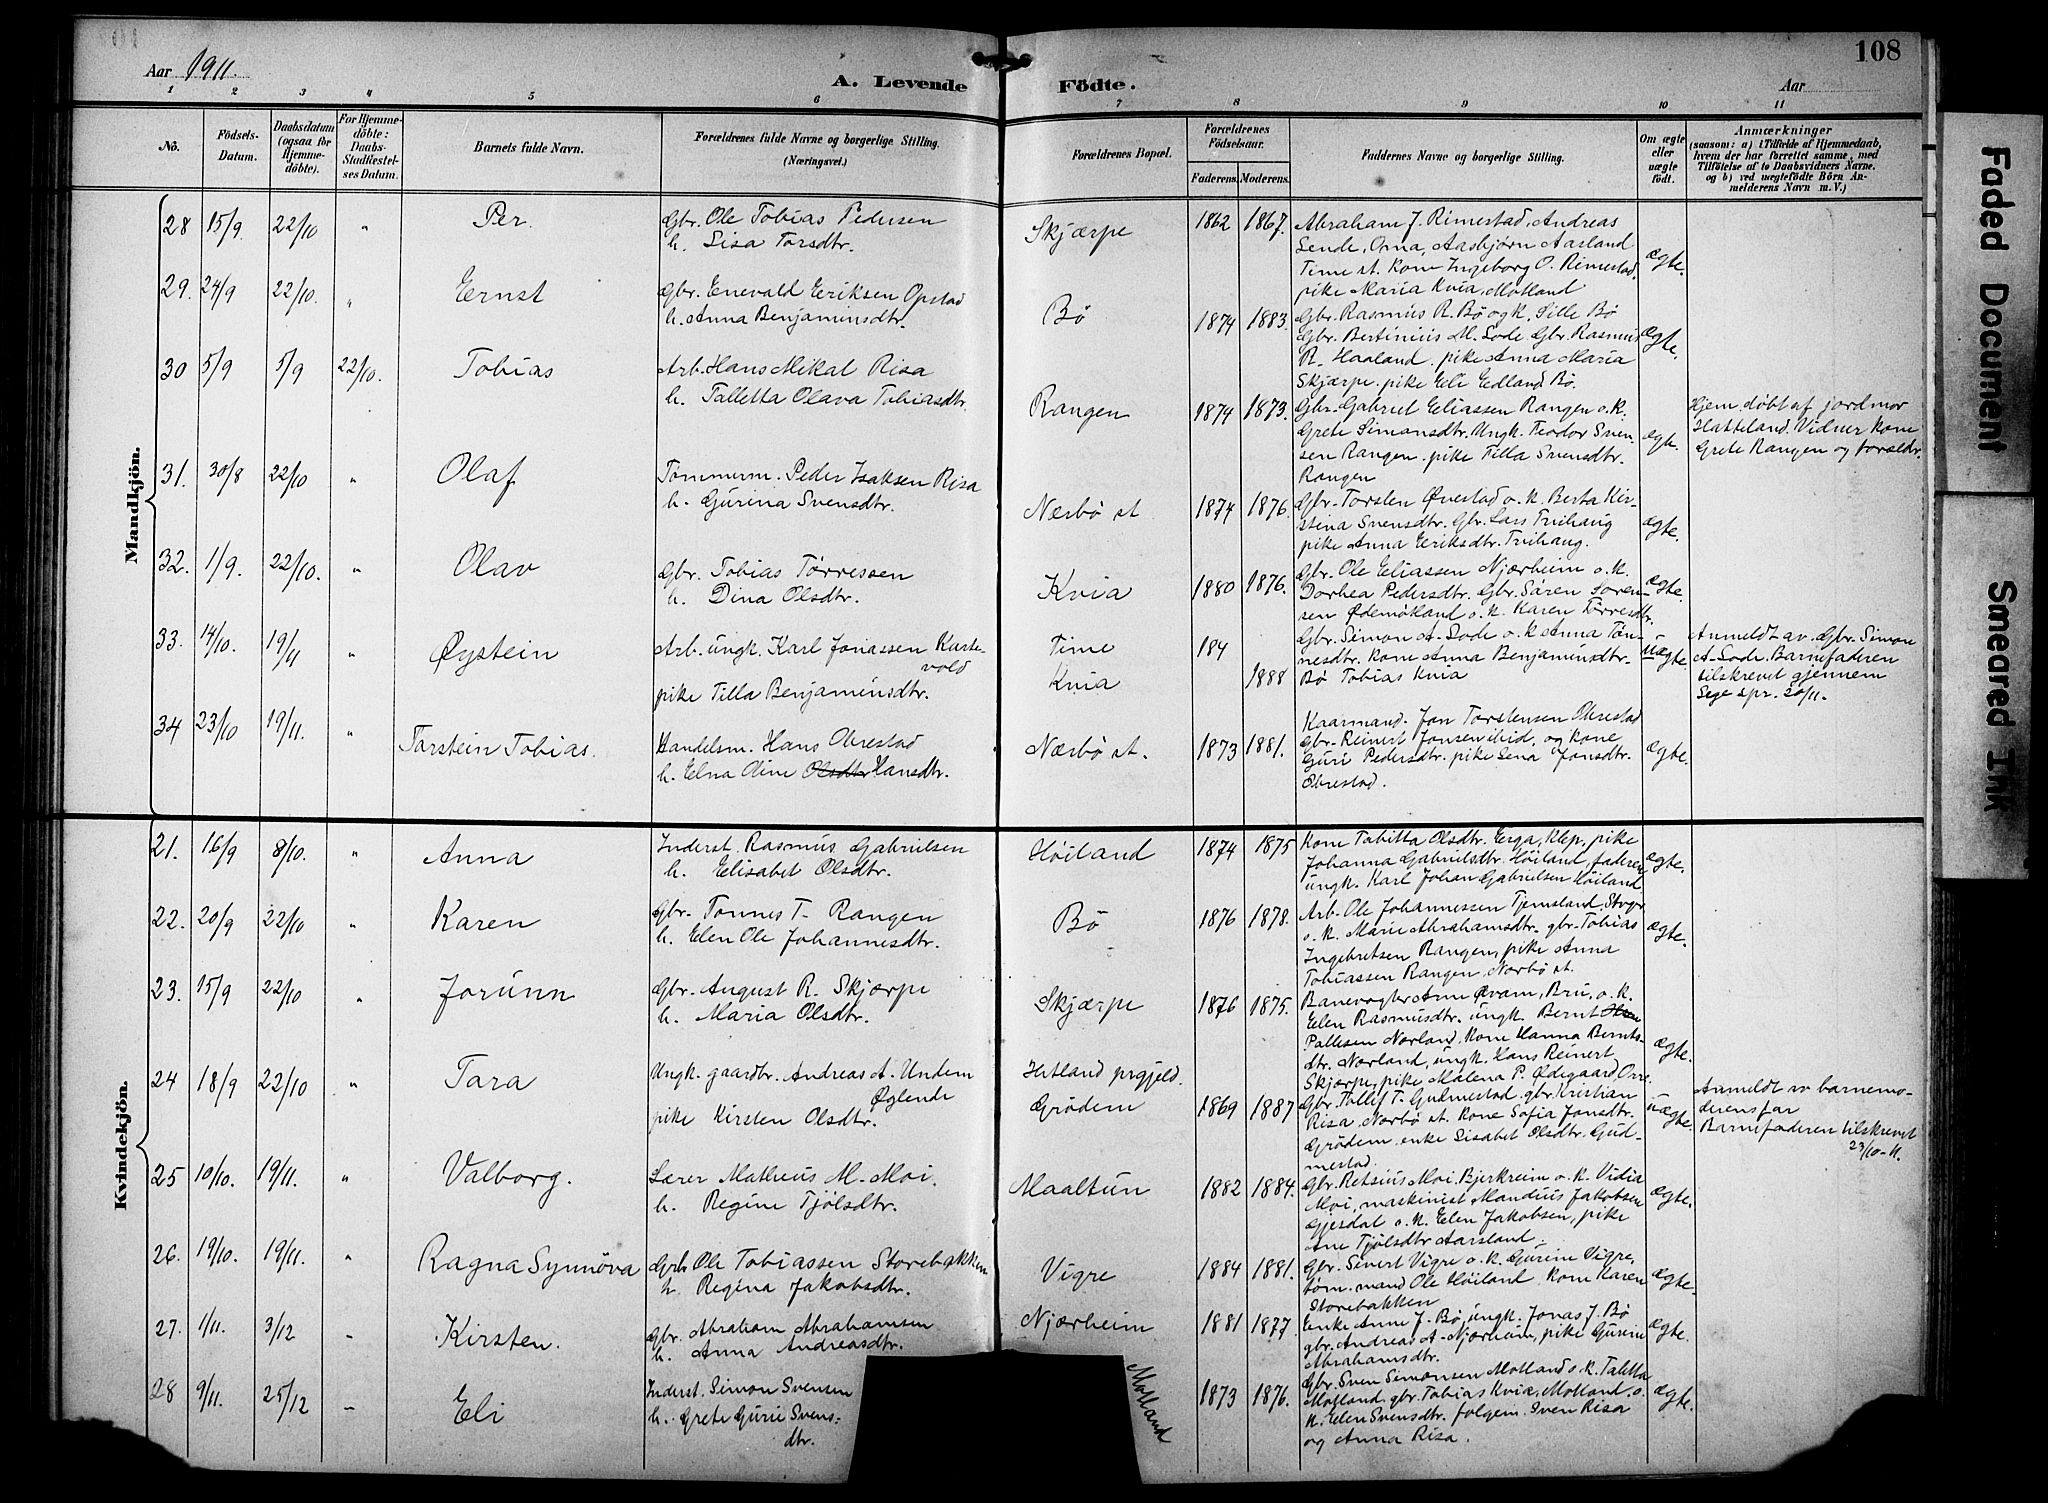 108
Aar 1911.
A. Levende Födte.
Aar
1 2 3 4 5 6 7 8 9 10 11
No.
Födsels-Datum.
Daabsdatum (ogsaa for Hjemmedöbte).
For Hjemmedöbte: Daabs-Stadfestelses Datum.
Barnets fulde Navn.
Forældrenes fulde Navne og borgerlige Stilling. (Næringsvei.)
Forældrenes Bopæl.
Forældrenes Födselsaar.
Faderens. Moderens.
Faddernes Navne og borgerlige Stilling.
Om ægte eller uægte födt.
Anmærkninger
(saasom: a) i Tilfælde af Hjemmedaab,
hvem der har forrettet samme, med
Tilföielse af to Daabsvidners Navne,
og b) ved uægtefödte Börn An-
melderens Navn m. V.)
Mandkjön.
28 15/9 22/10 " Per.
Gbr. Ole Tobias Pedersen
h. Lisa Torsdtr.
Skjærpe 1862 1867.
Abraham J. Rimestad, Andreas
Sende, Orna, Aasbjørn Aarsland
Time st. Kone Ingeborg O. Rimestad,
pike Maria Kvia, Motland
ægte.
29. 24/9 22/10. " Ernst
Gbr. Enevald Eriksen Opstad
h. Anna Benjaminsdtr.
Bö 1874 1883.
Gbr. Rasmus R. Bö og k. Sille Bö
Gbr. Bertinius M. Lode Gbr. Rasmus
R. Haaland. pike Anna Maria
Skjærpe. pike Eli Edland Bö.
ægte.
30 5/9 5/9 22/10. Tobias
Arb. Hans Mikal Risa
h. Talletta Olava Tobiasdtr.
Rangen 1874 1873.
Gbr. Gabriel Eliassen Rangen o.k.
Grete Simonsdtr. Ungk. Teodor Sven-
sen Rangen. pike Tilla Svensdtr.
Rangen
ægte.
Hjem. döbt af jordmor
Hatteland. Vidner kone
Grete Rangen og foreldr.
31. 30/8 22/10 " Olaf
Tømmerm. Peder Isaksen Risa
h. Gurina Svensdtr.
Nærbö st. 1874 1876.
Gbr. Torsten Øvestad o.k. Berta Kir-
stina Svensdtr. Gbr. Lars Tuihaug
pike Anna Eriksdtr. Tuihaug.
ægte.
32. 1/9. 22/10. " Olav
Gbr. Tobias Tørressen
h. Dina Olsdtr.
Kvia 1880 1876.
Gbr. Ole Eliassen Njærheim o.k.
Dorhea Pedersdtr. Gbr. Sören Soren-
sen Ødemotland o.k. Karen Tørresdtr.
ægte.
33. 14/10. 19/11 " Øystein
Arb. ungk. Karl Jonassen Karte-
vold
pike Tilla Benjaminsdtr.
Time 184
Kvia 1888
Gbr. Simon A. Lode o.k Anna Tön-
nesdtr. Kone Anna Benjaminsdtr.
Bö Tobias Kvia
uægte.
Anmeldt av. Gbr. Simon
A. Lode. Barnefaderen
tilskrevet gjennem
Lege spr. 20/11.
34 23/10 19/11. " Tarstein Tobias.
Handelsm. Hans Obrestad
h. Elna Oline Olsdtr Hansdtr.
Nærbö st. 1873 1881.
Kaarmand. Jon Torstensen Obrestad
Gbr. Reinert Jonsen ibid, og kone
Guri Pedersdtr. pike Lena Jonsdtr.
Obrestad.
ægte.
Kvindekjön.
21. 16/9 8/10. " Anna
Inderst. Rasmus Gabrielsen
h. Elisabet Olsdtr.
Höiland 1874 1875
Kone Tabitta Olsdtr. Erga, Klep, pike
Johanna Gabrielsdtr. Höiland, faderen
ungk. Karl Johan Gabrielsen Höiland
ægte.
22. 20/9 22/10 " Karen
Gbr. Tönnes T. Rangen
h. Elen Ole Johannesdtr.
Bö 1876 1878.
Arb. Ole Johannessen Tjemsland, Stvgr
o. k. Marie Abrahamsdtr. gbr. Tobias
Ingebretsen Rangen, pike Anna
Tobiassen Rangen, Nærbö st.
ægte.
23. 15/9 22/10 " Jorunn
Gbr. August R. Skjærpe
h. Maria Olsdtr.
Skjærpe 1876 1875.
Banevogter Arne Øvam, Bru, o.k.
Elen Rasmusdtr. ungk. Bernt
Pallesen Nærland. Kone Hanna Bernts-
dtr. Nærland, ungk. Hans Reinert
Skjærpe, pike Malena P. Ødegaard, Orre
ægte.
24 18/9 22/10 " Tara
Ungk. gaardbr. Andreas A. Undem
Øglende
pike Kirsten Olsdtr.
Hetland prgjeld.
Grödem 1869 1887
Gbr. Tollef T. Gudmestad. gbr. Kristian
Risa, Nærbö st. Kone Sofia Jonsdtr.
Grödem. enke Lisabet Olsdtr. Gud-
mestad.
uægte.
Anmeldt av barnemo-
derens far
Barnefaderen tilskrevet
23/10-11.
25 10/10. 19/11. " Valborg.
Lærer Matheus M. Moi.
h. Regine Tjölsdtr.
Maaltun 1882 1884.
Gbr. Retsius Moi, Bjerkreim o.k. Vidia
Moi, maskinist Mandius Jakobsen
Gjesdal o.k. Elen Jakobsen, pike
Ane Tjölsdtr Aarsland.
ægte.
26. 19/10. 19/11. " Ragna Synnöva
Grb. Ole Tobiassen Storebakken
h. Regina Jakobsdtr.
Vigre 1884 1881.
Gbr. Sivert Vigre o.k. Gurine Vigre,
töm. mand Ole Höiland, Kone Karen
Storebakken
ægte.
27. 1/11. 3/12 " Kirsten.
Gbr. Abraham Abrahamsen
h. Anna Andreasdtr.
Njærheim 1881 1877
Enke Anne J. Bö, ungk. Jonas J. Bö
gbr. Andreas A. Njærheim, pike Gurine
Abrahamsdtr.
ægte.
28 9/11. 25/12 " Eli
Inderst. Simon Svensen
h. Grete Guri Svens-
dtr.
Motland 1873 1876.
Gbr. Sven Simonsen Motland o.k. Taletta
Motland. gbr. Tobias Kvia, Motland. o.
k. Elen Svensdtr. folgem. Sven Risa
og Anna Risa.
ægte.
Faded Document
Smeared Ink